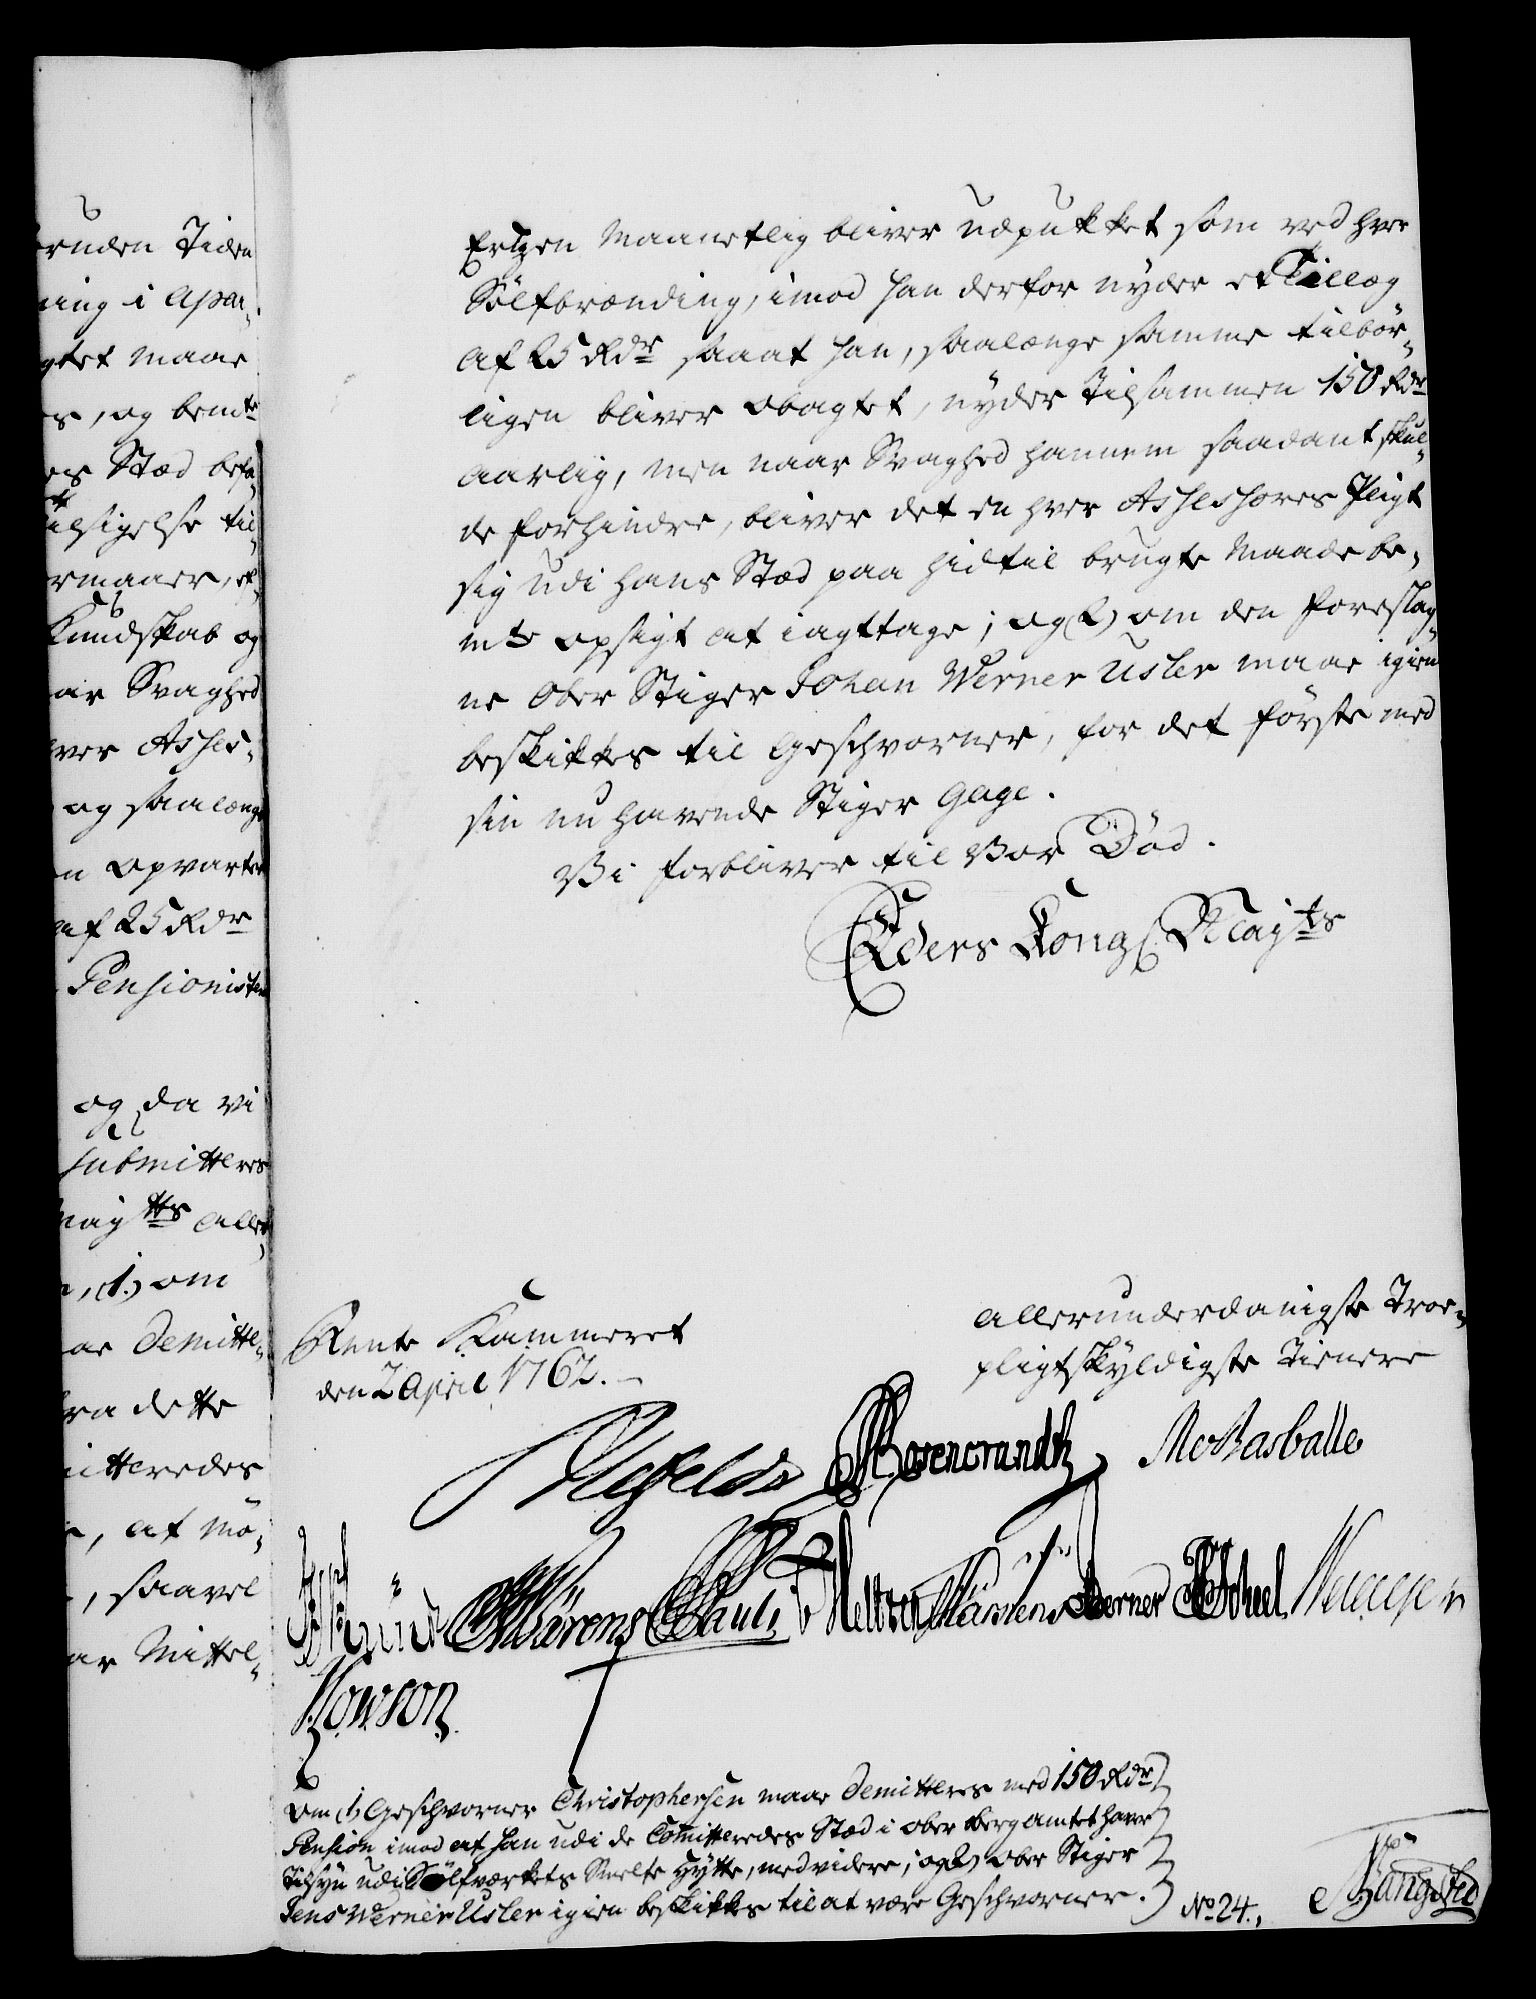 eruden Tiden
ning i Apar-
gtet maae
s, og bemte
es Stæd befa-
tilsigelse til-
ermaaer, et-
Kundskab og
ar Svaghed
ver Asses-
og saalænge
n opvarter
af 25 Rdr
Pensionisten
og da vi
submitteres
Maytts aller-
, (1.) om
ae Demitte-
ra dette
itteredes
, at mö-
, saavel
ar Mittel-
Ertzen Maanetlig bliver udpukket som ved hver
Sölfbrænding, imod han derfor nyder et Tillæg
af 25 Rdr saaat han, saalænge samme tilbör-
ligen bliver obagtet, nyder tilsammen 150 Rdr
aarlig, men naar Svaghed hannem saadant skul-
de forhindre, bliver det en hver Assessores Pligt
sig udi hans Stæd paa hidtil brugte Maade be-
mte opsigt at iagttage; og (2) om den foreslag-
ne Ober Stiger Johan Werner Usler maae igien
beskikkes til Geschvorner, for det förste med
sin nu havende Stiger Gage.
Vi forbliver til Vor Död.
Eders Kongl. Mayts
Rente Kammeret
den 2 April 1762.
allerunderdanigste Troe-
pligtskyldigste Tienere
Ahlefeldt Rosencrandtz Moßasballe
Wörens Pauli Meltzen Martens Berner Scheel
Rowson
Om (1) Geschvorner Christophersen maae Demitteres med 150 Rdr
Pension imod at han udi de Comitteredes Stæd i Ober bergamtet have
Tilsyn udi Sölfværkets Smelte Hytte, med videre; og (2) Ober Stiger
Jens Werner Usler igien beskikkes til at være Geschvorner.
No 24.